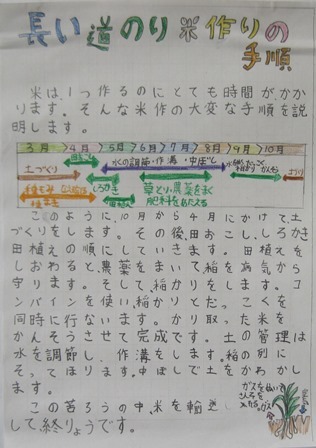 長い道のり米作りの
手順
米は、1つ作るのにとても時間がかか
ります。そんな米作の大変な手順を説
明します。
3月 4月 5月 6月 7月 8月 9月 10月
水の調節・作溝・中ぼし
土づくり
しろかき
草とり・農薬をまく
肥料をあたえる
このように、10月から4月にかけて、土
づくりをします。その後、田おこし、しろかき
田植えの順にしていきます。田植えを
しおわると、農薬をまいて稲を病気から
守ります。そして、稲かりをします。コ
ンバインを使い、稲かりとだっこくを
同時に行ないます。かり取った米を
かんそうさせて完成です。土の管理は
水を調節し、作溝をします。稲の列に
そってほります。中ぼしで土をかわかし
ます。
この苦ろうの中、米を輸送し
して終りょうです。